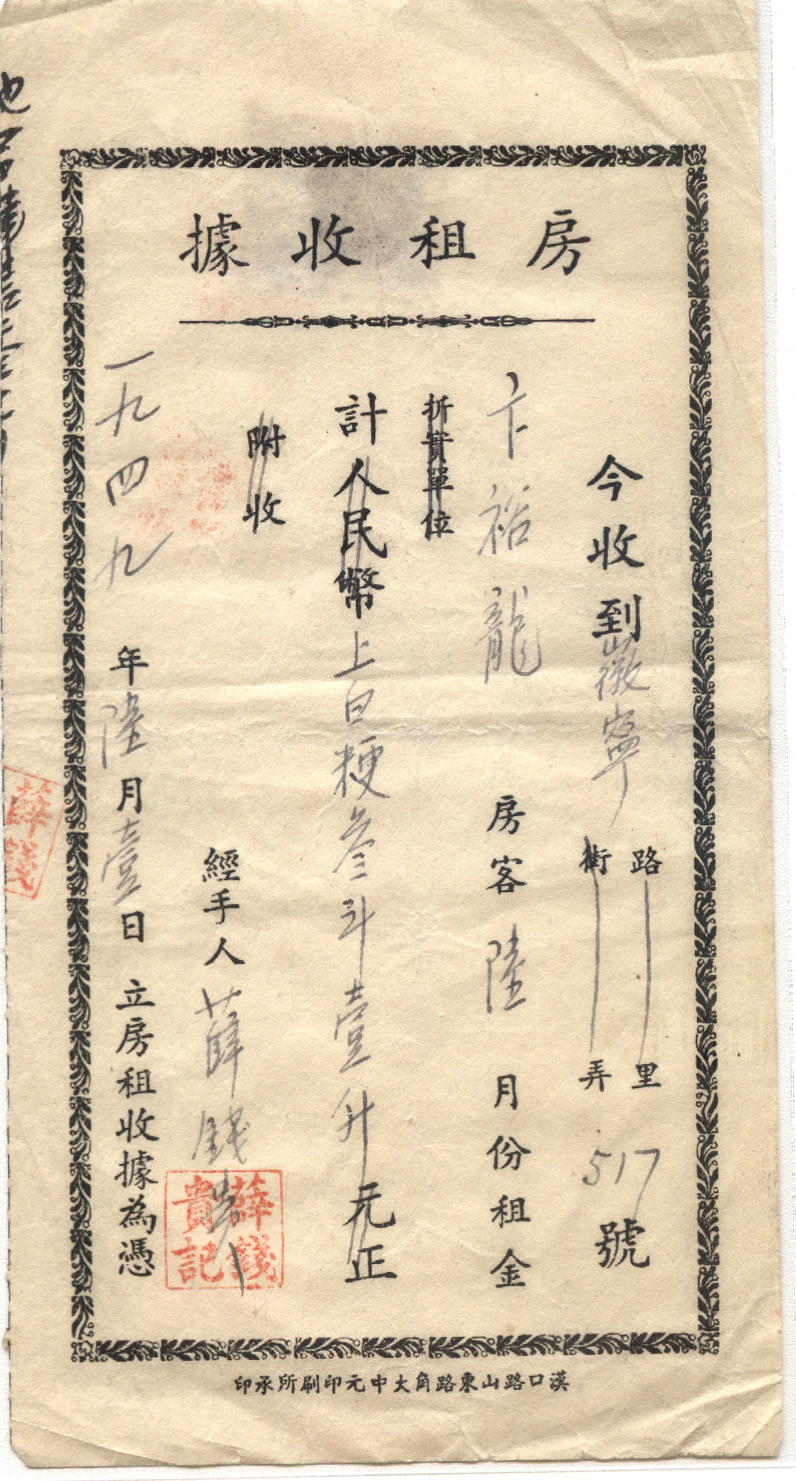 房租收據
今收到徽寧路街里弄517號
卞裕龍房客陸月份租金
折實單位
計人民幣上白粳叁斗壹升元正
附收
經手人薛錢貴
薛錢貴記
一九四九年陸月壹日立房租收據為憑
薛錢
漢口路山東路角大中元印刷所承印